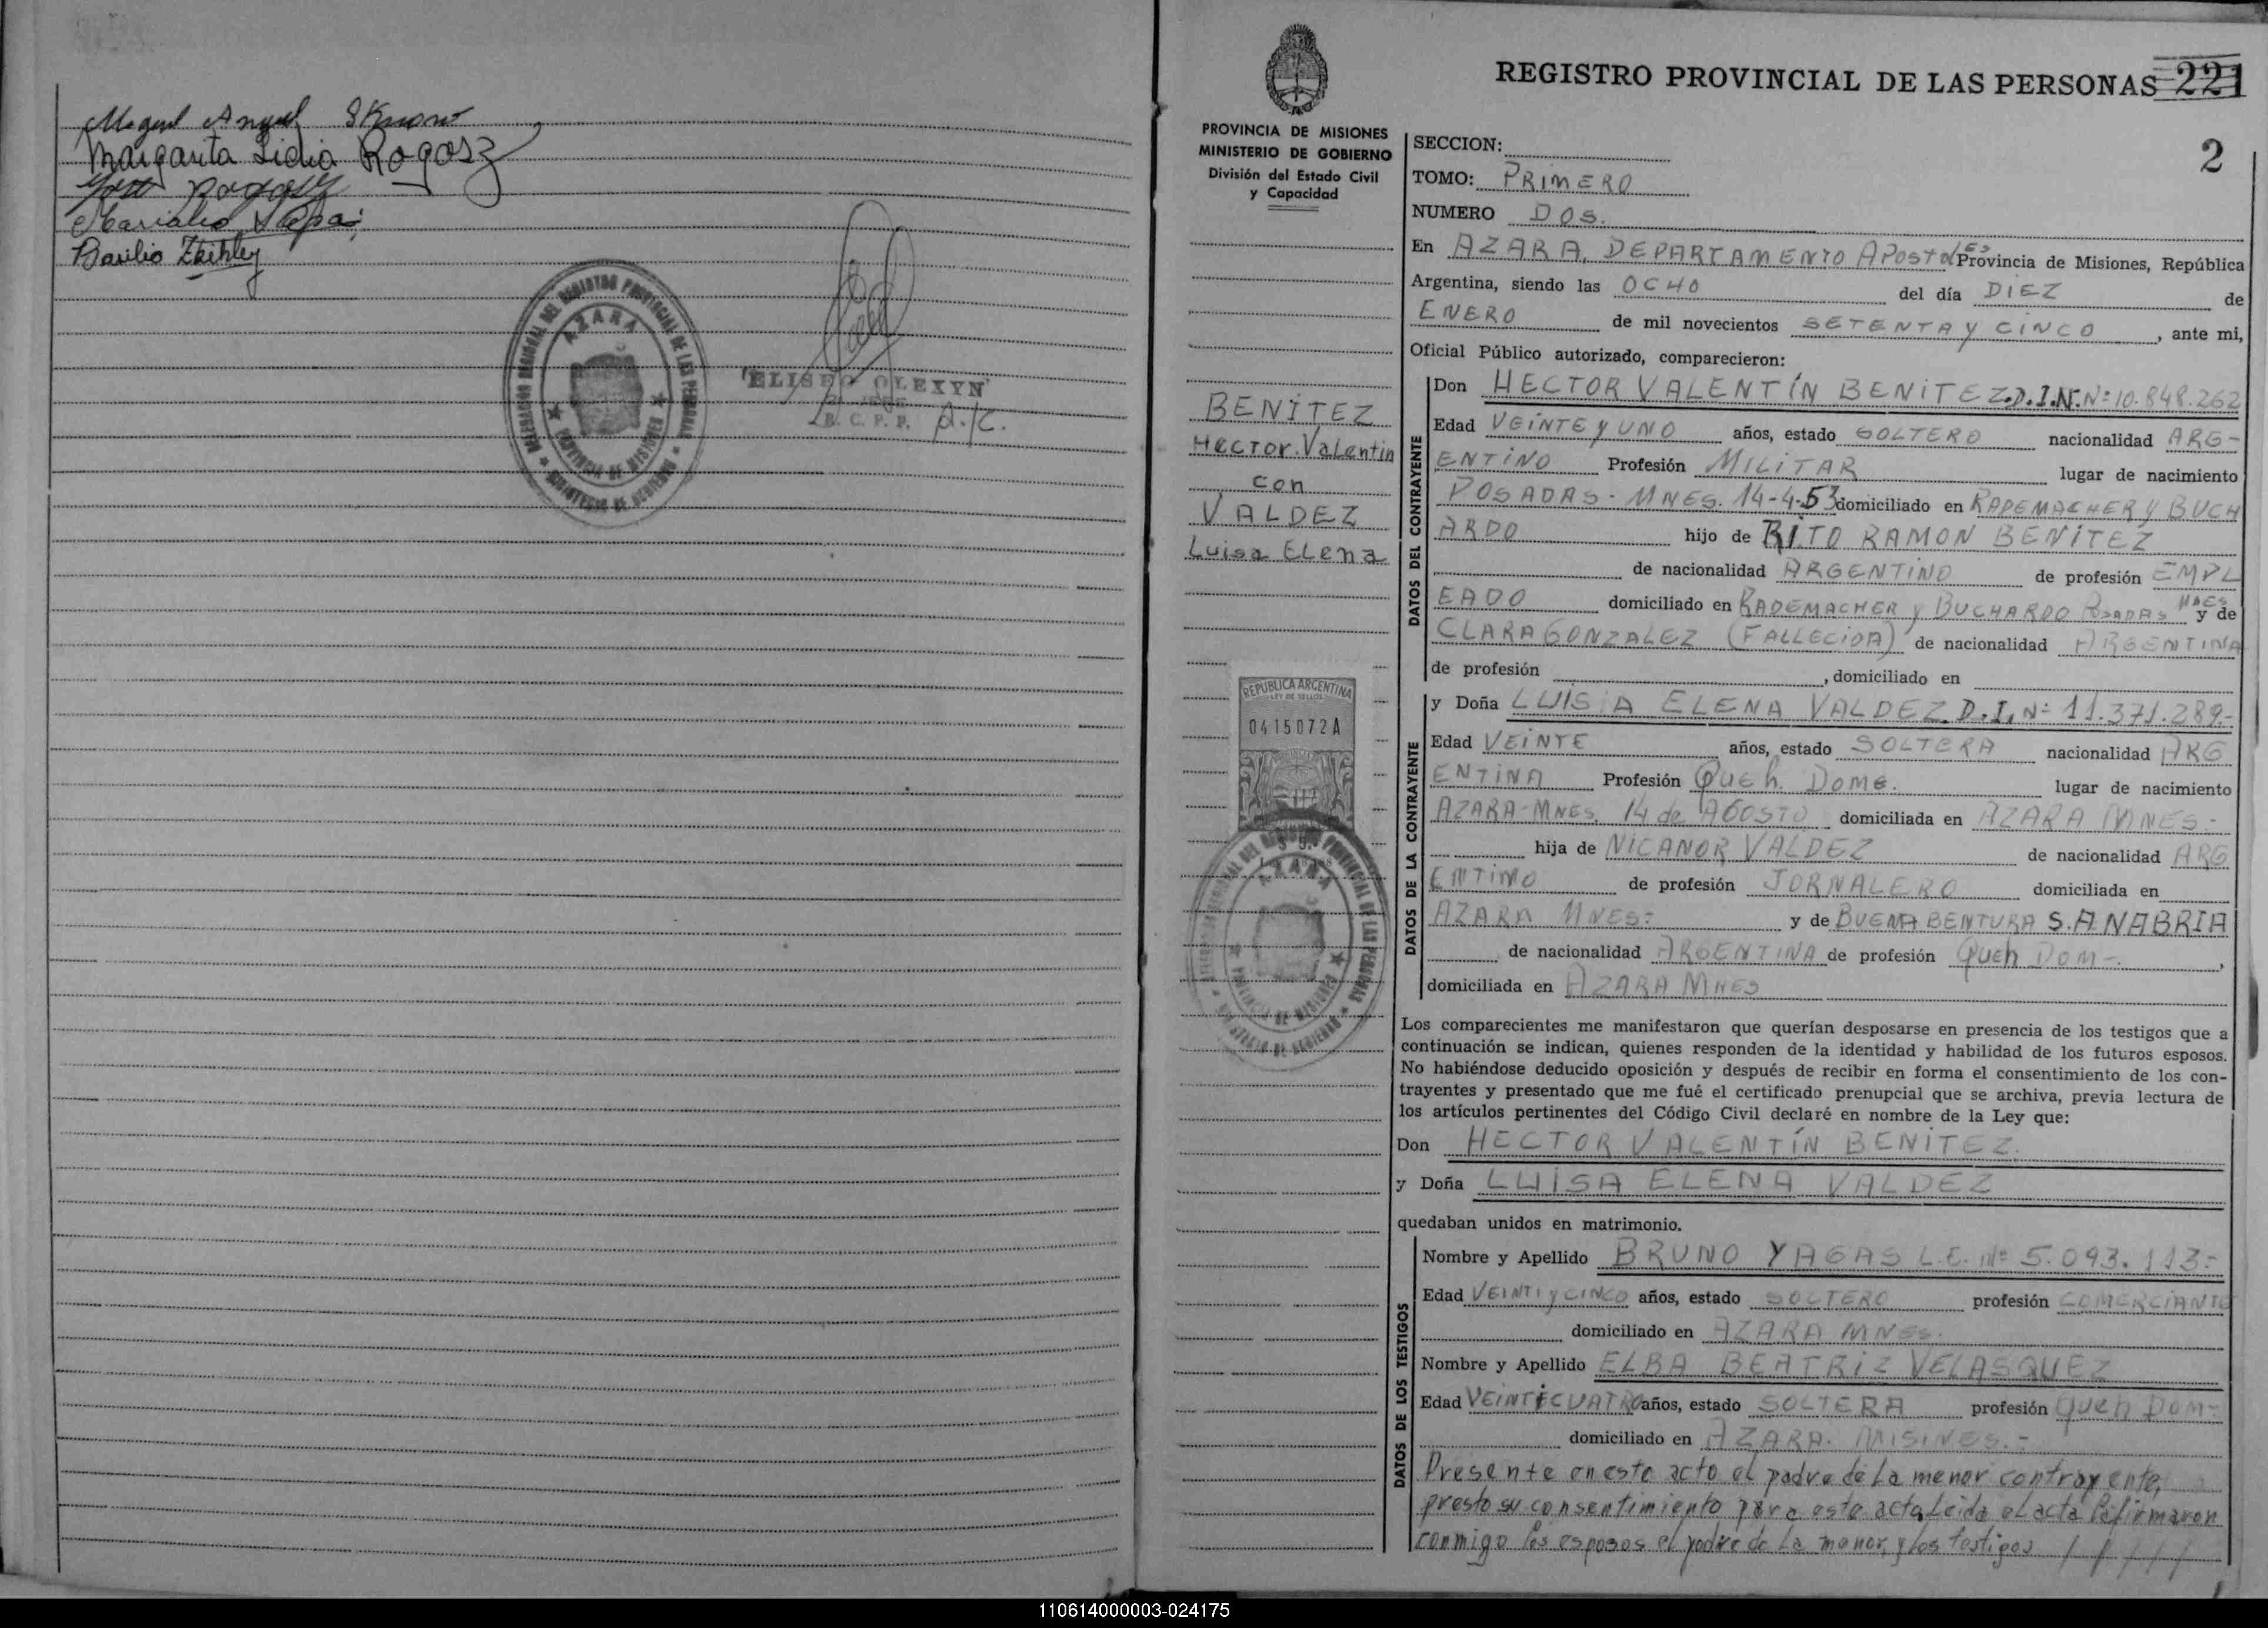 Miguel Angel
Margarita Lidia Rogosz
Basilio
DELEGACION REGIONAL DEL REGISTRO PROVINCIAL DE LAS PERSONAS
AZARA
PROVINCIA DE MISIONES
MINISTERIO DE GOBIERNO
ELISEO OLEXYN
JEFE
R. C. P. P. A/C.
REGISTRO PROVINCIAL DE LAS PERSONAS 221
2
PROVINCIA DE MISIONES
MINISTERIO DE GOBIERNO
División del Estado Civil
y Capacidad
BENITEZ
Hector Valentin
con
VALDEZ
Luisa Elena
REPUBLICA ARGENTINA
LEY DE SELLOS
0415072A
DELEGACION REGIONAL DEL REGISTRO PROVINCIAL DE LAS PERSONAS
AZARA
PROVINCIA DE MISIONES
MINISTERIO DE GOBIERNO
SECCION:
TOMO: PRIMERO
NUMERO DOS.
En AZARA, DEPARTAMENTO APOSTOLES Provincia de Misiones, República
Argentina, siendo las OCHO del día DIEZ de
ENERO de mil novecientos SETENTA Y CINCO, ante mi,
Oficial Público autorizado, comparecieron:
DATOS DEL CONTRAYENTE
Don HECTOR VALENTÍN BENITEZ.D.I.N.Nº 10.848.262
Edad VEINTE Y UNO años, estado SOLTERO nacionalidad ARG-
ENTINO Profesión MILITAR lugar de nacimiento
POSADAS - MNES. 14-4-53 domiciliado en RADEMACHER Y BUCH
ARDO hijo de RITO RAMON BENITEZ
de nacionalidad ARGENTINO de profesión EMPL
EADO domiciliado en RADEMACHER Y BUCHARDO POSADAS MNES y de
CLARA GONZALEZ (FALLECIDA) de nacionalidad ARGENTINA
de profesión , domiciliado en
DATOS DE LA CONTRAYENTE
y Doña LUISA ELENA VALDEZ D.I. Nº 11.371.289-
Edad VEINTE años, estado SOLTERA nacionalidad ARG
ENTINA Profesión Queh. DOME. lugar de nacimiento
AZARA-MNES, 14 de AGOSTO domiciliada en AZARA MNES-
hija de NICANOR VALDEZ de nacionalidad ARG
ENTINO de profesión JORNALERO domiciliada en
AZARA MNES- y de BUENABENTURA SANABRIA
de nacionalidad ARGENTINA de profesión Queh DOM-,
domiciliada en AZARA MNES
Los comparecientes me manifestaron que querían desposarse en presencia de los testigos que a
continuación se indican, quienes responden de la identidad y habilidad de los futuros esposos.
No habiéndose deducido oposición y después de recibir en forma el consentimiento de los con-
trayentes y presentado que me fué el certificado prenupcial que se archiva, previa lectura de
los artículos pertinentes del Código Civil declaré en nombre de la Ley que:
Don HECTOR VALENTÍN BENITEZ.
y Doña LUISA ELENA VALDEZ
quedaban unidos en matrimonio.
DATOS DE LOS TESTIGOS
Nombre y Apellido BRUNO YAGAS L.E. Nº 5.093.113-
Edad VEINTI y CINCO años, estado SOLTERO profesión COMERCIANTE
domiciliado en AZARA MNES.
Nombre y Apellido ELBA BEATRIZ VELASQUEZ
Edad VEINTICUATRO años, estado SOLTERA profesión Queh DOM-
domiciliado en AZARA. MISINES.-
Presente en este acto el padre de La menor contrayente,
presto su consentimiento para este acta Leida el acta la firmaron
conmigo los esposos el padre de La menor, y los testigos / / / / /
110614000003-024175